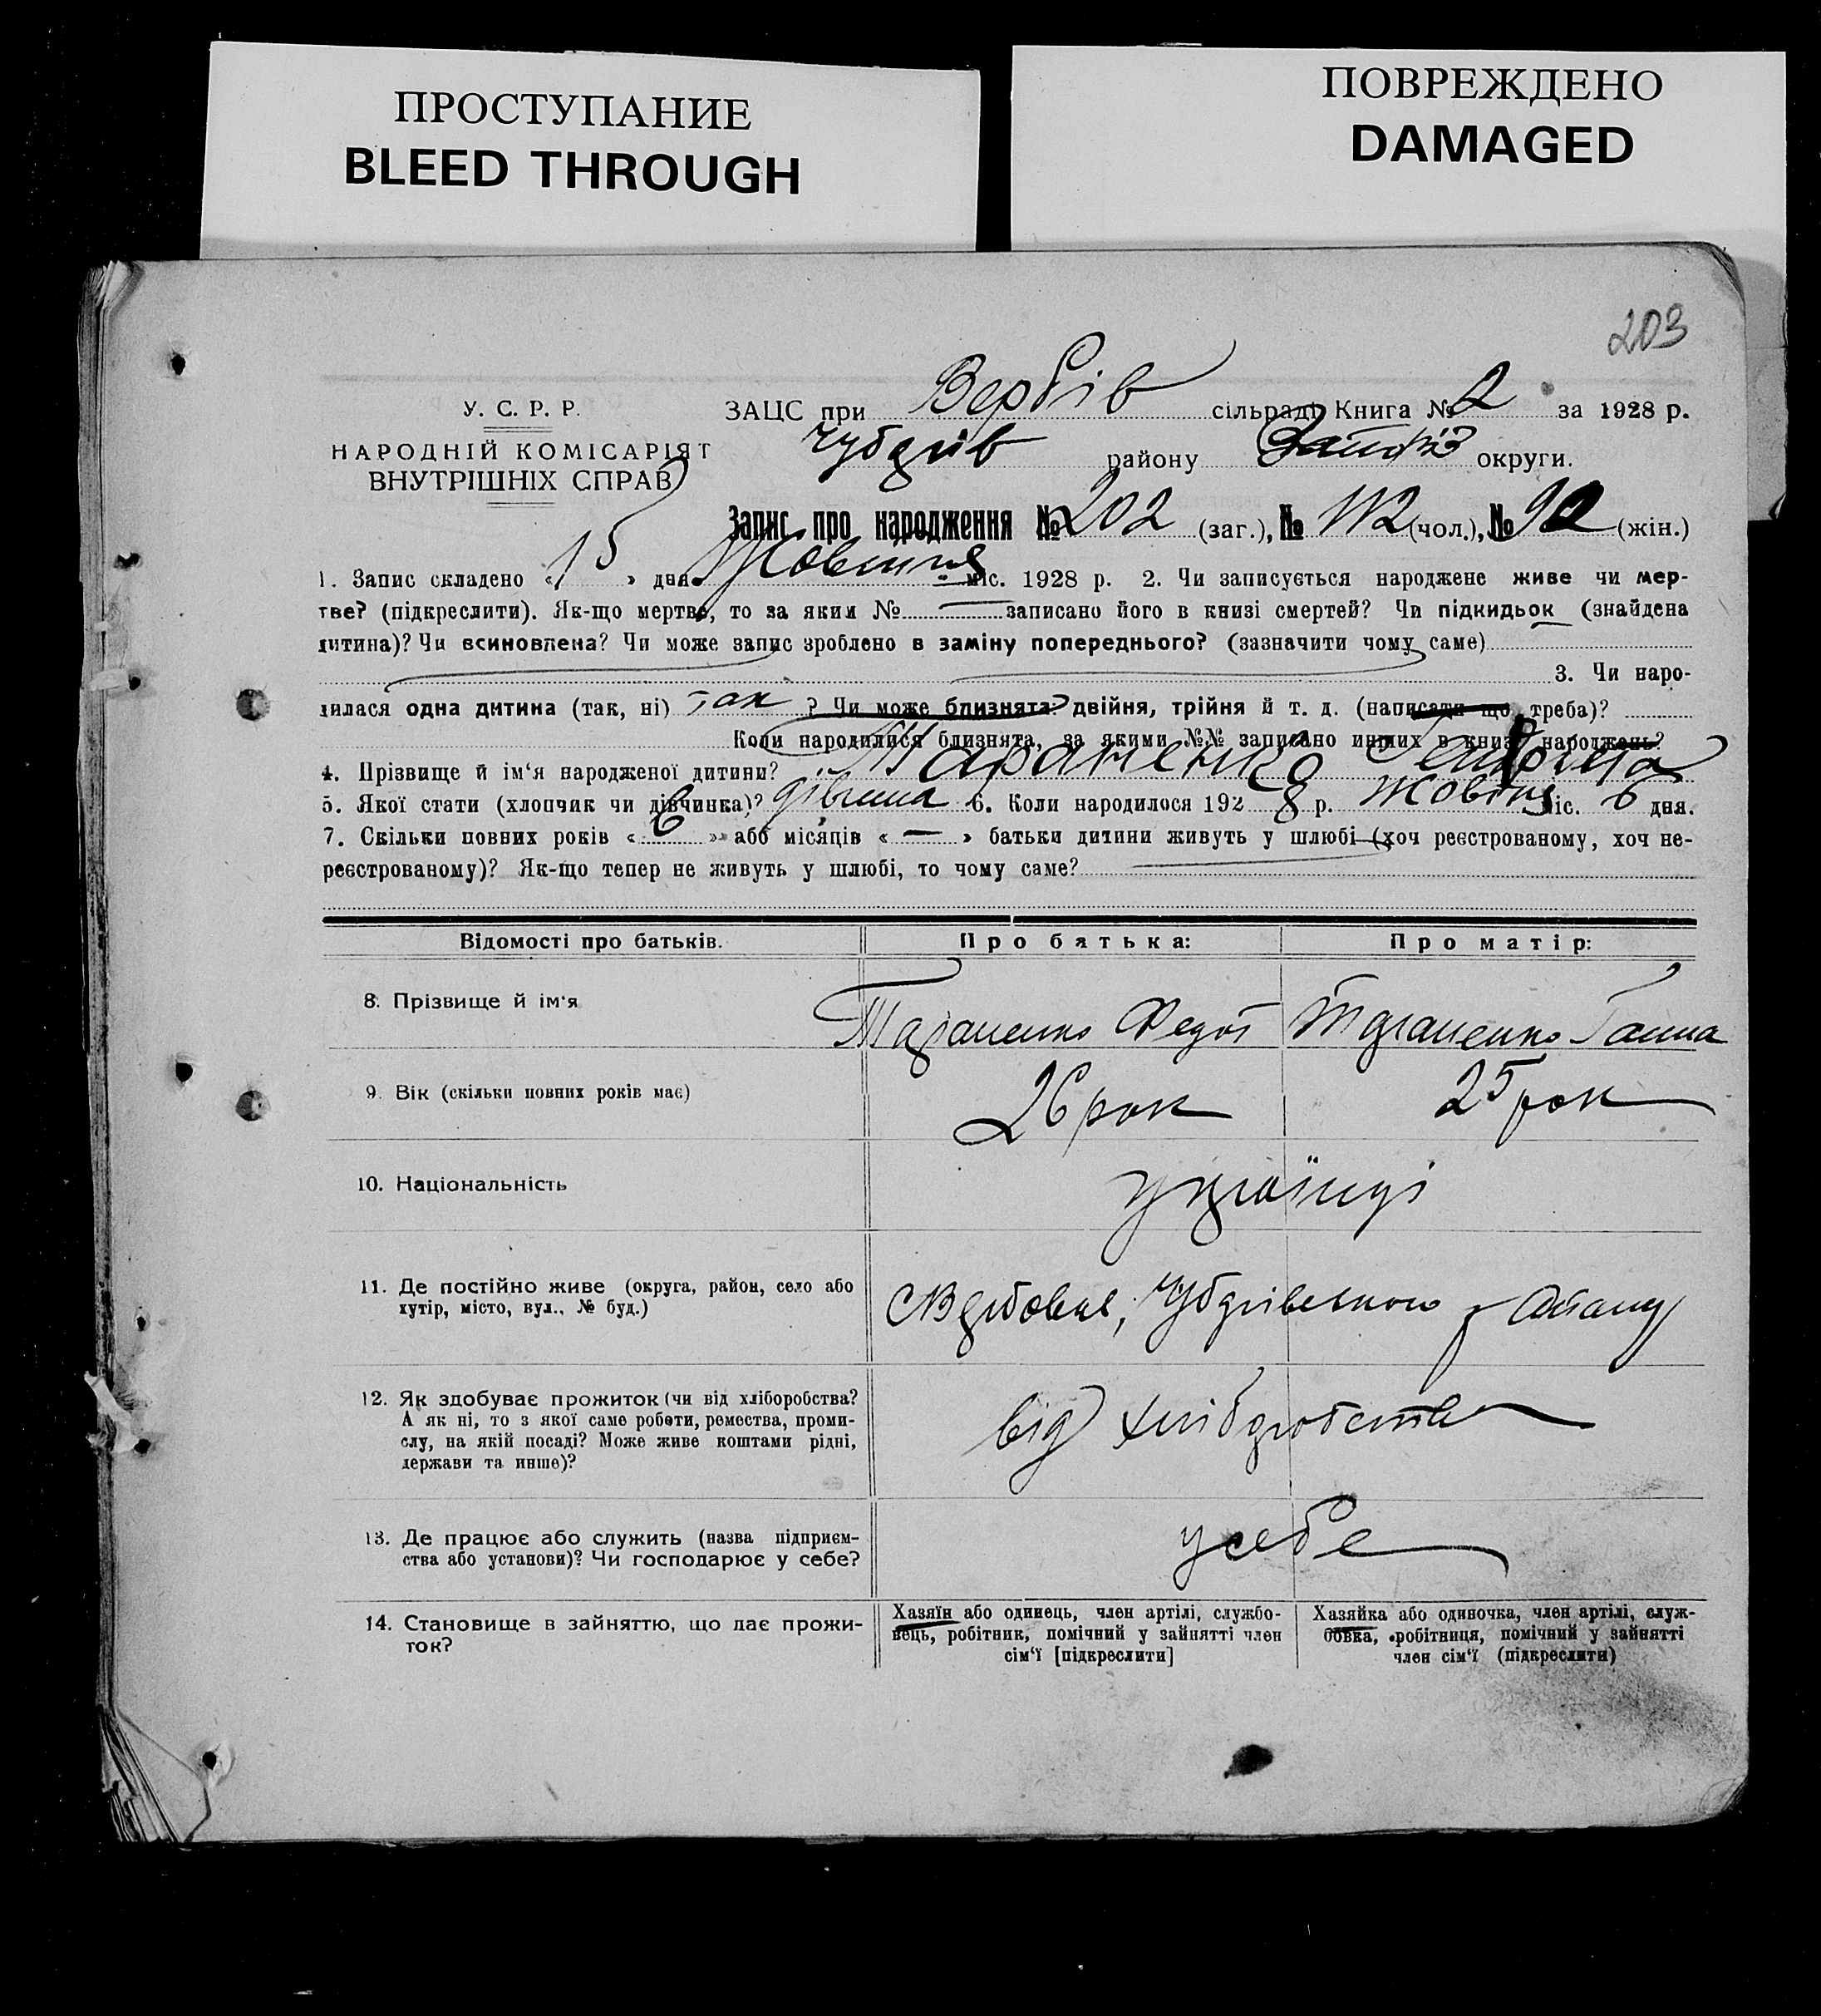 ПРОСТУПАНИЕ
BLEED THROUGH
ПОВРЕЖДЕНО
DAMAGED
203
У. С. Р. Р.
НАРОДНІЙ КОМІСАРІЯТ
ВНУТРІШНІХ СПРАВ
ЗАЦС при Вербів сільраді Книга № 2 за 1928 р.
Чубарів району округи.
Запис про народження № 202 (заг.), № 112 (чол.), № 90 (жін.)
1. Запис складено « 15 » дня Жовтня міс. 1928 р. 2. Чи записується народжене живе чи мер-
тве? (підкреслити). Як-що мертве, то за яким № — записано його в книзі смертей? Чи підкидьок (знайдена
дитина)? Чи всиновлена? Чи може запис зроблено в заміну попереднього? (зазначити чому саме)
3. Чи наро-
дилася одна дитина (так, ні) так ? Чи може близнята? двійня, трійня й т. д. (написати що треба)?
Коли народилися близнята, за якими №№ записано инших в книзі народжень?
4. Прізвище й ім‘я народженої дитини? Тараненко
5. Якої стати (хлопчик чи дівчинка)? дівчина 6. Коли народилося 192 8 р. Жовтня міс. 6 дня.
7. Скільки повних років « 6 » або місяців « — » батьки дитини живуть у шлюбі (хоч реєстрованому, хоч не-
реєстрованому)? Як-що тепер не живуть у шлюбі, то чому саме?
Відомості про батьків. Про батька: Про матір:
8. Прізвище й ім‘я Тараненко Федот Тараненко Ганна
9. Вік (скільки повних років має) 26 рок 25 рок
10. Національність українці
11. Де постійно живе (округа, район, село або
хутір, місто, вул., № буд.)
С Вербове, Чубарівського району
12. Як здобуває прожиток (чи від хліборобства?
А як ні, то з якої саме роботи, ремества, проми-
слу, на якій посаді? Може живе коштами рідні,
держави та инше)?
від хліборобства
13. Де працює або служить (назва підприєм-
ства або установи)? Чи господарює у себе?
у себе
14. Становище в зайняттю, що дає прожи-
ток?
Хазяїн або одинець, член артілі, службо-
вець, робітник, помічний у зайнятті член
сім‘ї [підкреслити]
Хазяйка або одиночка, член артілі, служ-
бовка, робітниця, помічний у зайнятті
член сім‘ї (підкреслити)